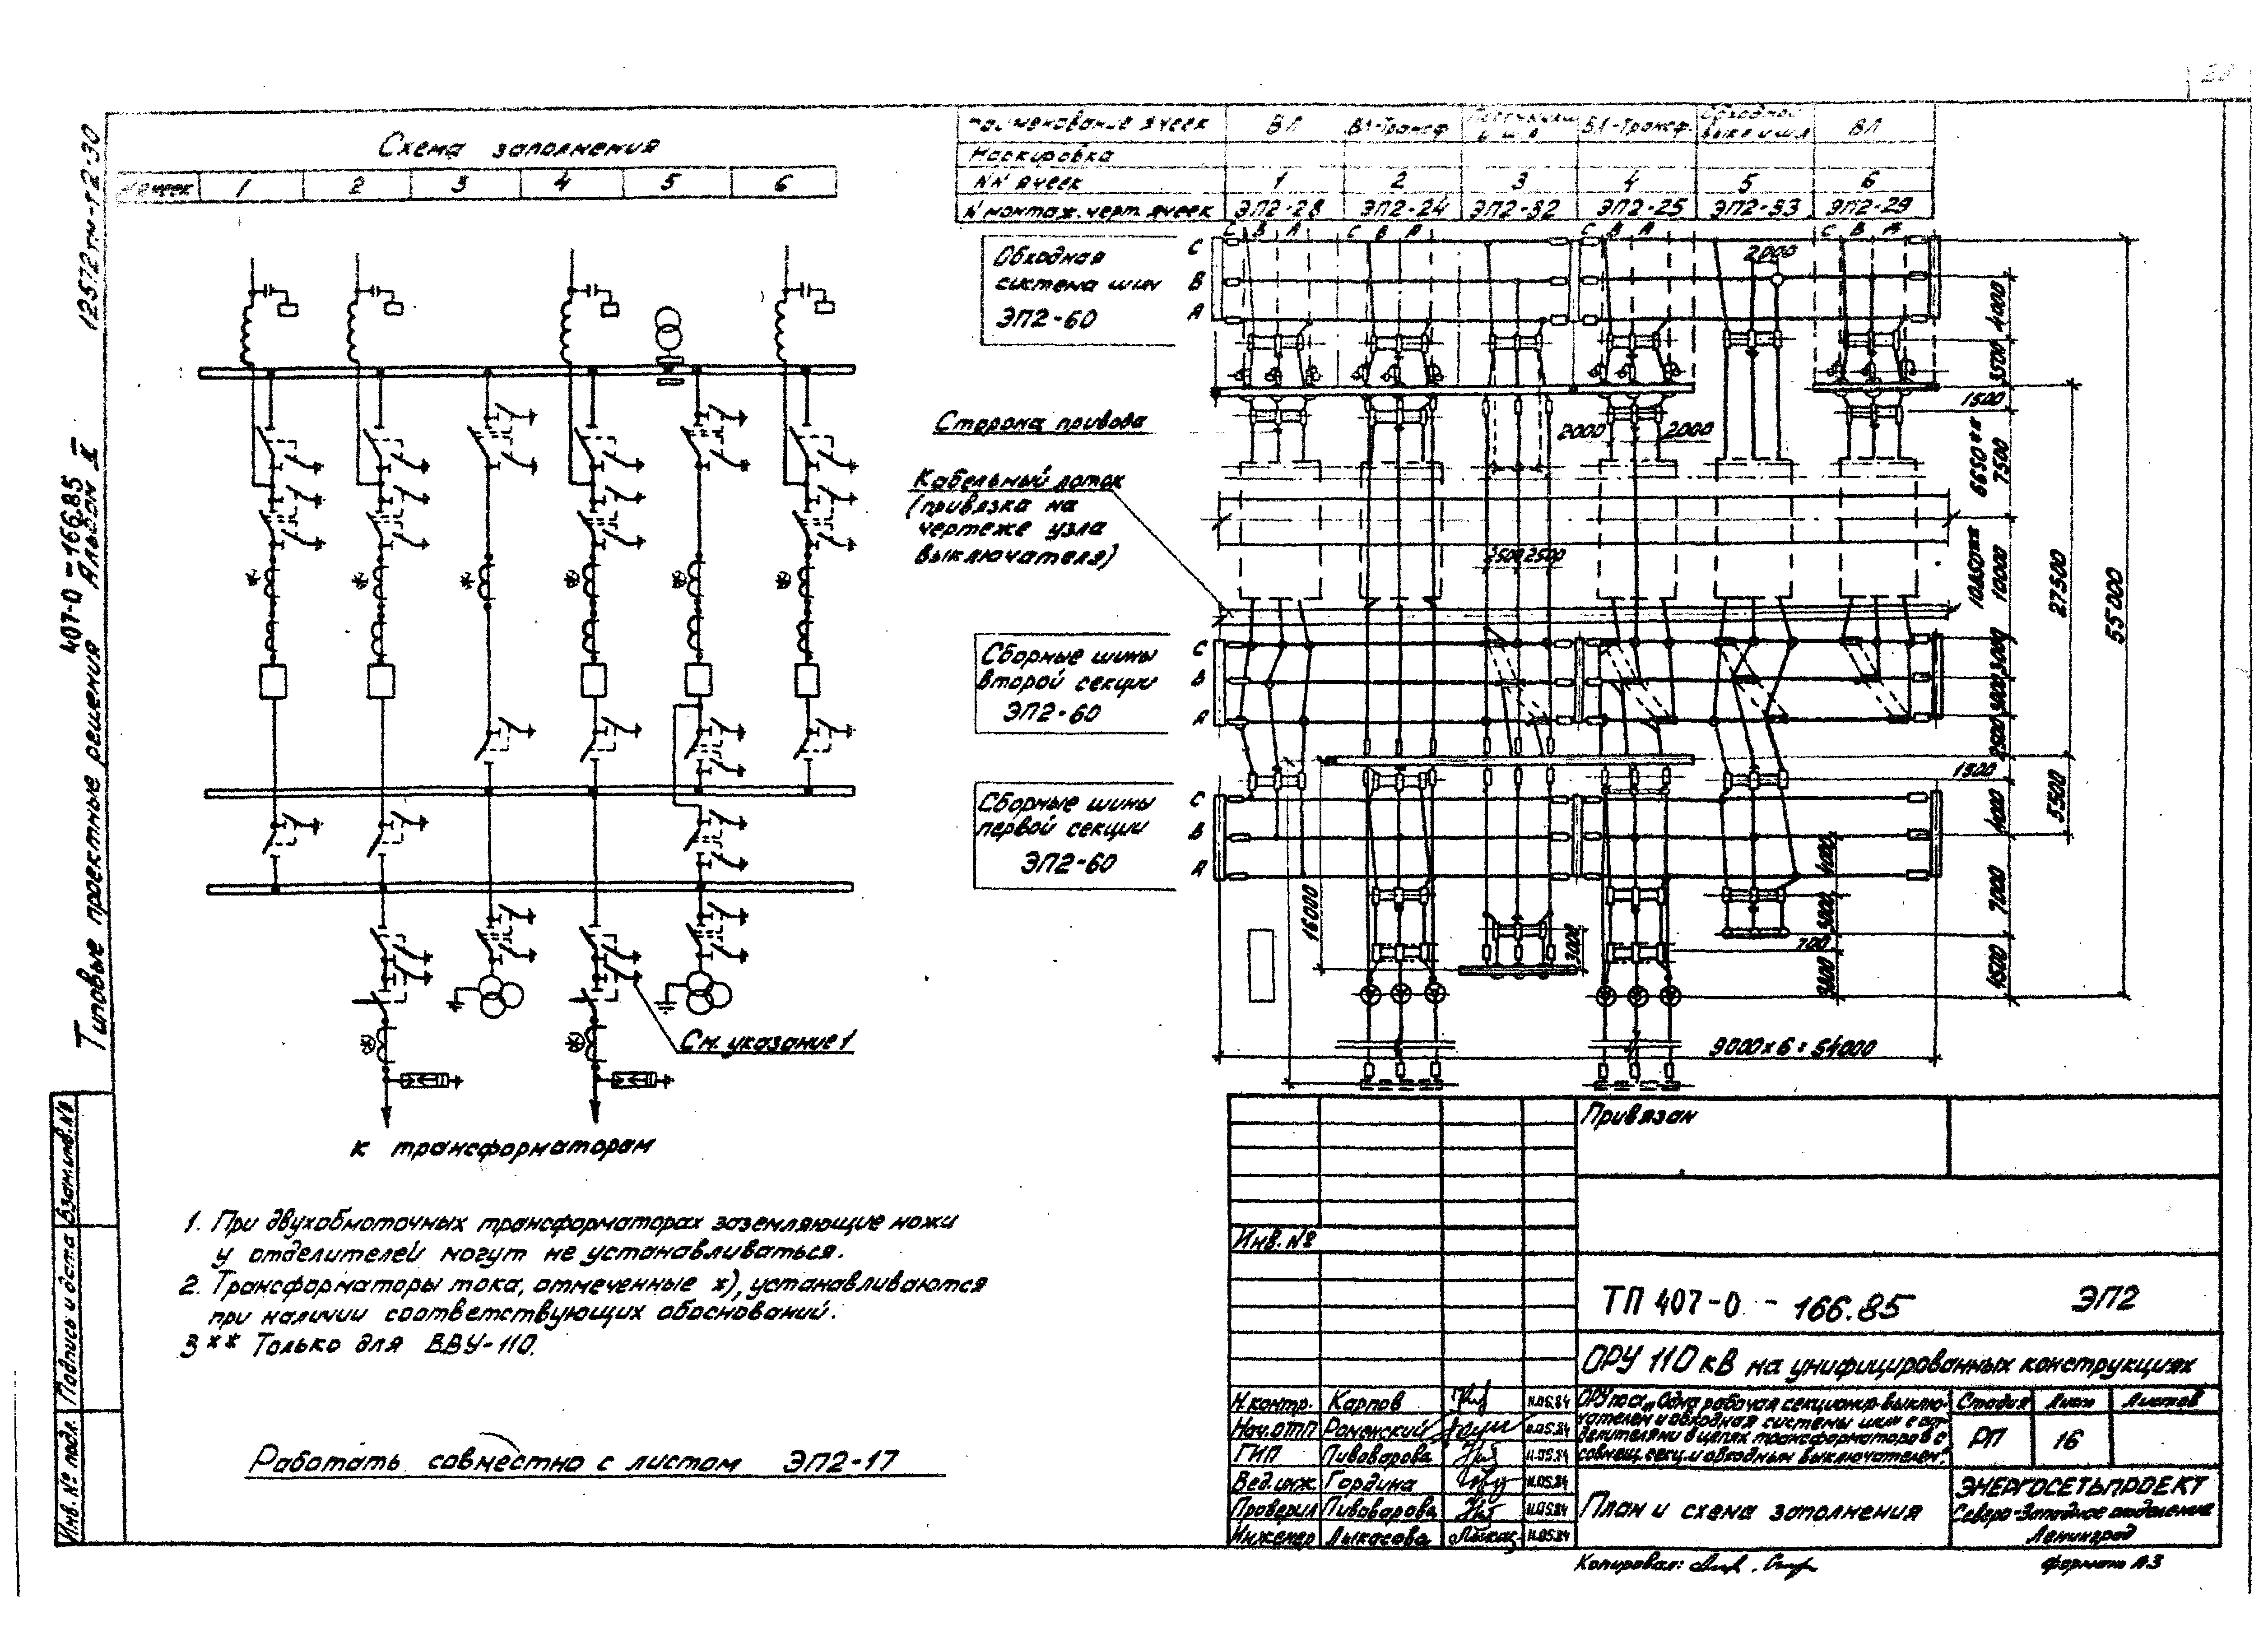 12572тм-т2-30
407-0-166.85
Типовые проектные решения Альбом II
Схема заполнения
1 2 3 4 5 6
См. указание 1
к трансформаторам
1. При двухобмоточных трансформаторах заземляющие ножи
у отделителей могут не устанавливаться.
2. Трансформаторы тока, отмеченные х), устанавливаются
при наличии соответствующих обоснований.
3 ** Только для ВВУ-110.
Работать совместно с листом ЭП2-17
Наименование ячеек ВЛ ВЛ-Трансф ВЛ-Трансф. Обходной выкл. и ш.л ВЛ
Маркировка
NN ячеек 1 2 3 4 5 6
N монтаж. черт. ячеек ЭП2-28 ЭП2-24 ЭП2-32 ЭП2-25 ЭП2-33 ЭП2-29
С В А С В А С В А С В А
Обходная
система шин
ЭП2-60
С
В
А
2000
4000
3500
1500
Сторона привода
2000 2000
6650**
7500
Кабельный лоток
(привязка на
чертеже узла
выключателя)
2500 2500
10850**
10000
27500
55000
Сборные шины
второй секции
ЭП2-60
С
В
А
3000
3000
2500
1500
Сборные шины
первой секции
ЭП2-60
С
В
А
4000
5500
4000
7000
16000
3000
700
4500
9000 х 6 = 54000
Привязан
Инв. №
ТП 407-0 - 166.85 ЭП2
ОРУ 110 кВ на унифицированных конструкциях
Н.контр. Карпов 11.05.84
Нач.ОТП Роменский 11.05.84
ГИП Пивоварова 11.05.84
Вед.инж. Гордина 11.05.84
Проверил Пивоварова 11.05.84
Инженер Лыкасова 11.05.84
ОРУ по сх. „Одна рабочая секционир. выклю-
чателем и обходная системы шин с от-
делителями в цепях трансформаторов с
совмещ. секц. и обходным выключателем".
Стадия Лист Листов
РП 16
План и схема заполнения
ЭНЕРГОСЕТЬПРОЕКТ
Северо-Западное отделение
Ленинград
Копировал:
формат А3
Инв. № подл. Подпись и дата Взам.инв.№